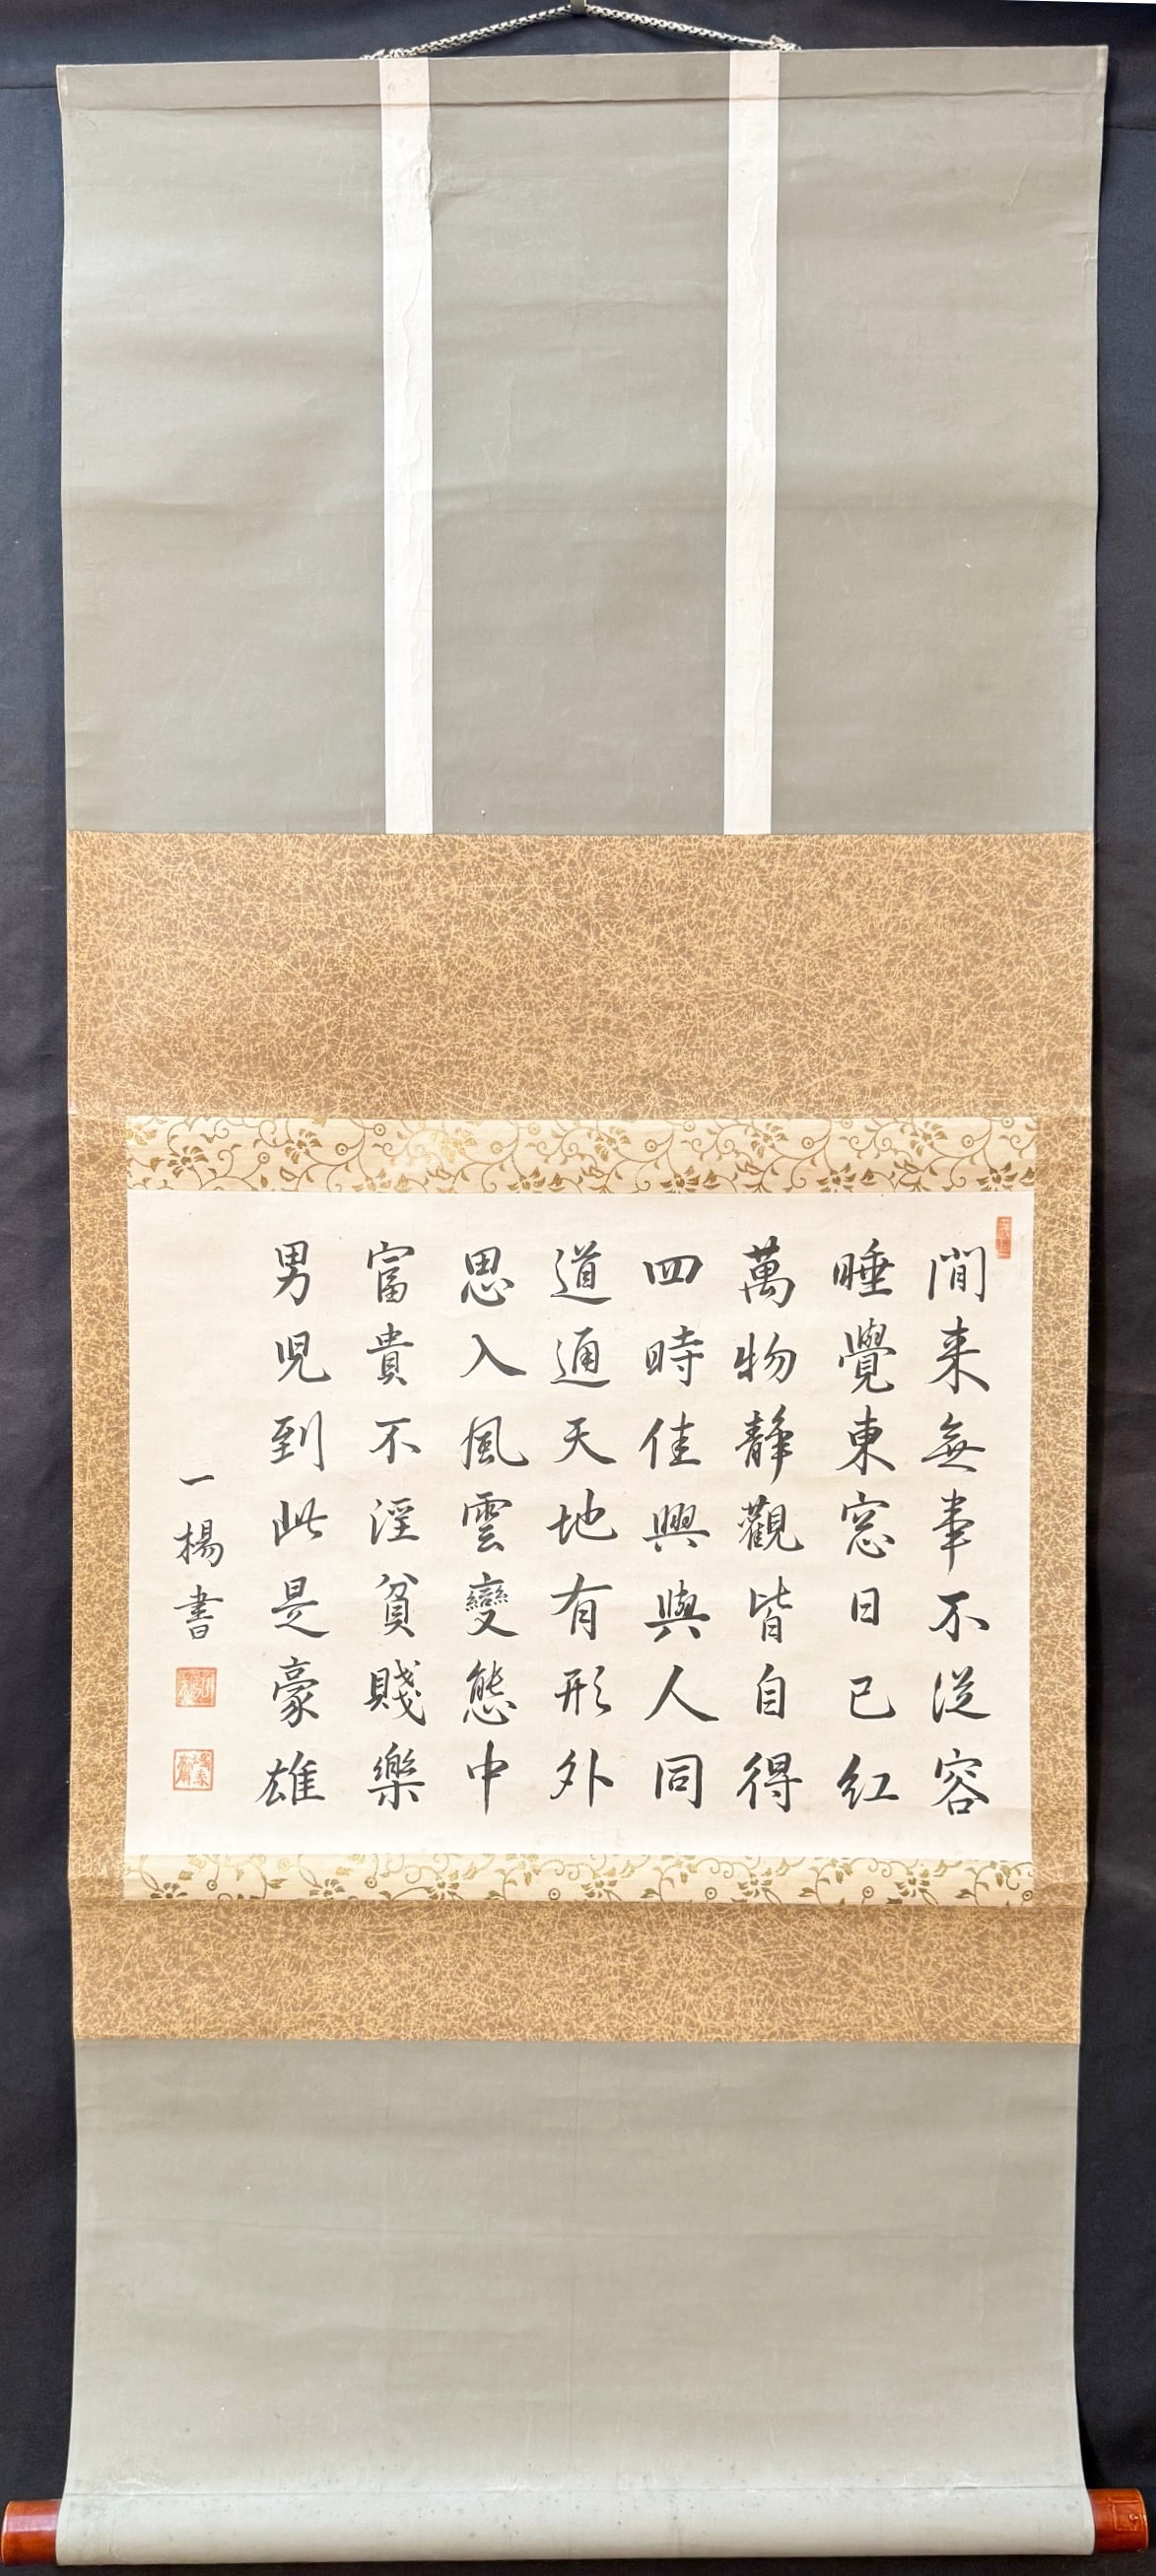 閒来無事不從容
睡覺東窓日已紅
萬物靜觀皆自得
四時佳興與人同
道通天地有形外
思入風雲變態中
富貴不淫貧賤樂
男児到此是豪雄
一楊書